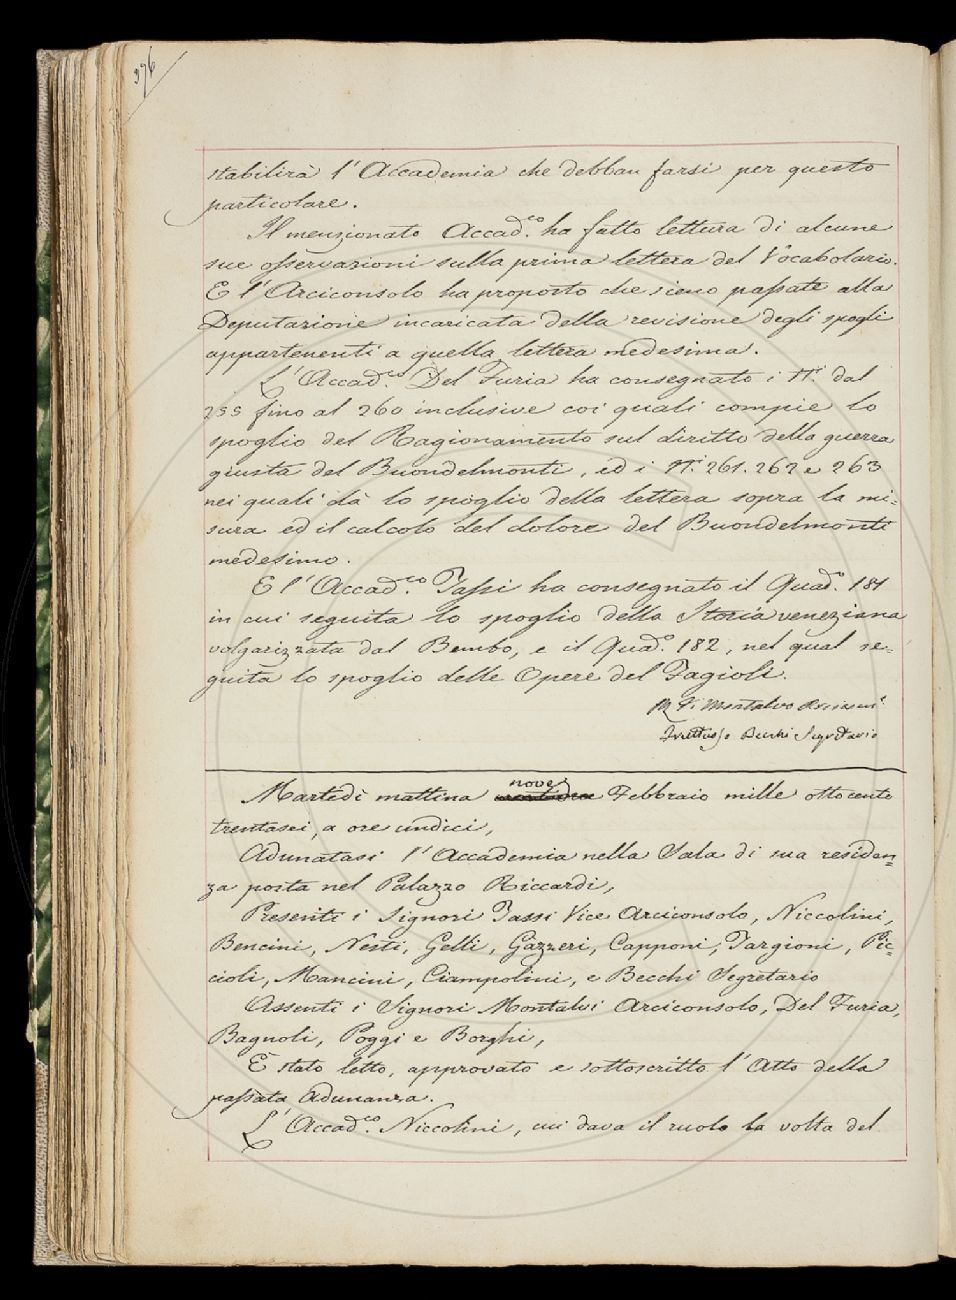 396
stabilirà l'Accademia che debban farsi per questo
particolare.
Il menzionato Accad.co ha fatto lettura di alcune
sue osservazioni sulla prima lettera del Vocabolario.
E l'Arciconsolo ha proposto che sieno passate alla
Deputazione incaricata della revisione degli spogli
appartenenti a quella lettera medesima.
L'Accad.co Del Furia ha consegnato i N.i dal
255 fino al 260 inclusive coi quali compie lo
spoglio del Ragionamento sul diritto della guerra
giusta del Buondelmonti, ed i N.i 261. 262 e 263
nei quali dà lo spoglio della lettera sopra la mi=
sura ed il calcolo del dolore del Buondelmonti
medesimo.
E l'Accad.co Tassi ha consegnato il Quad.o 181
in cui seguita lo spoglio della Storia veneziana
volgarizzata dal Bembo, e il Quad.o 182, nel qual se=
guita lo spoglio delle Opere del Fagioli.
Montalvo Arcicons.o
Fruttuoso Becchi Segretario
nove
Martedì mattina Febbraio mille ottocento
trentasei, a ore undici,
Adunatasi l'Accademia nella Sala di sua residen=
za posta nel Palazzo Riccardi,
Presenti i Signori Tassi Vice Arciconsolo, Niccolini,
Bencini, Nesti, Gelli, Gazzeri, Capponi, Targioni, Pic=
cioli, Mancini, Ciampolini, e Becchi Segretario
Assenti i Signori Montalvi Arciconsolo, Del Furia,
Bagnoli, Poggi e Borghi,
È stato letto, approvato e sottoscritto l'Atto della
passata Adunanza.
L'Accad.co Niccolini, cui dava il ruolo la volta del